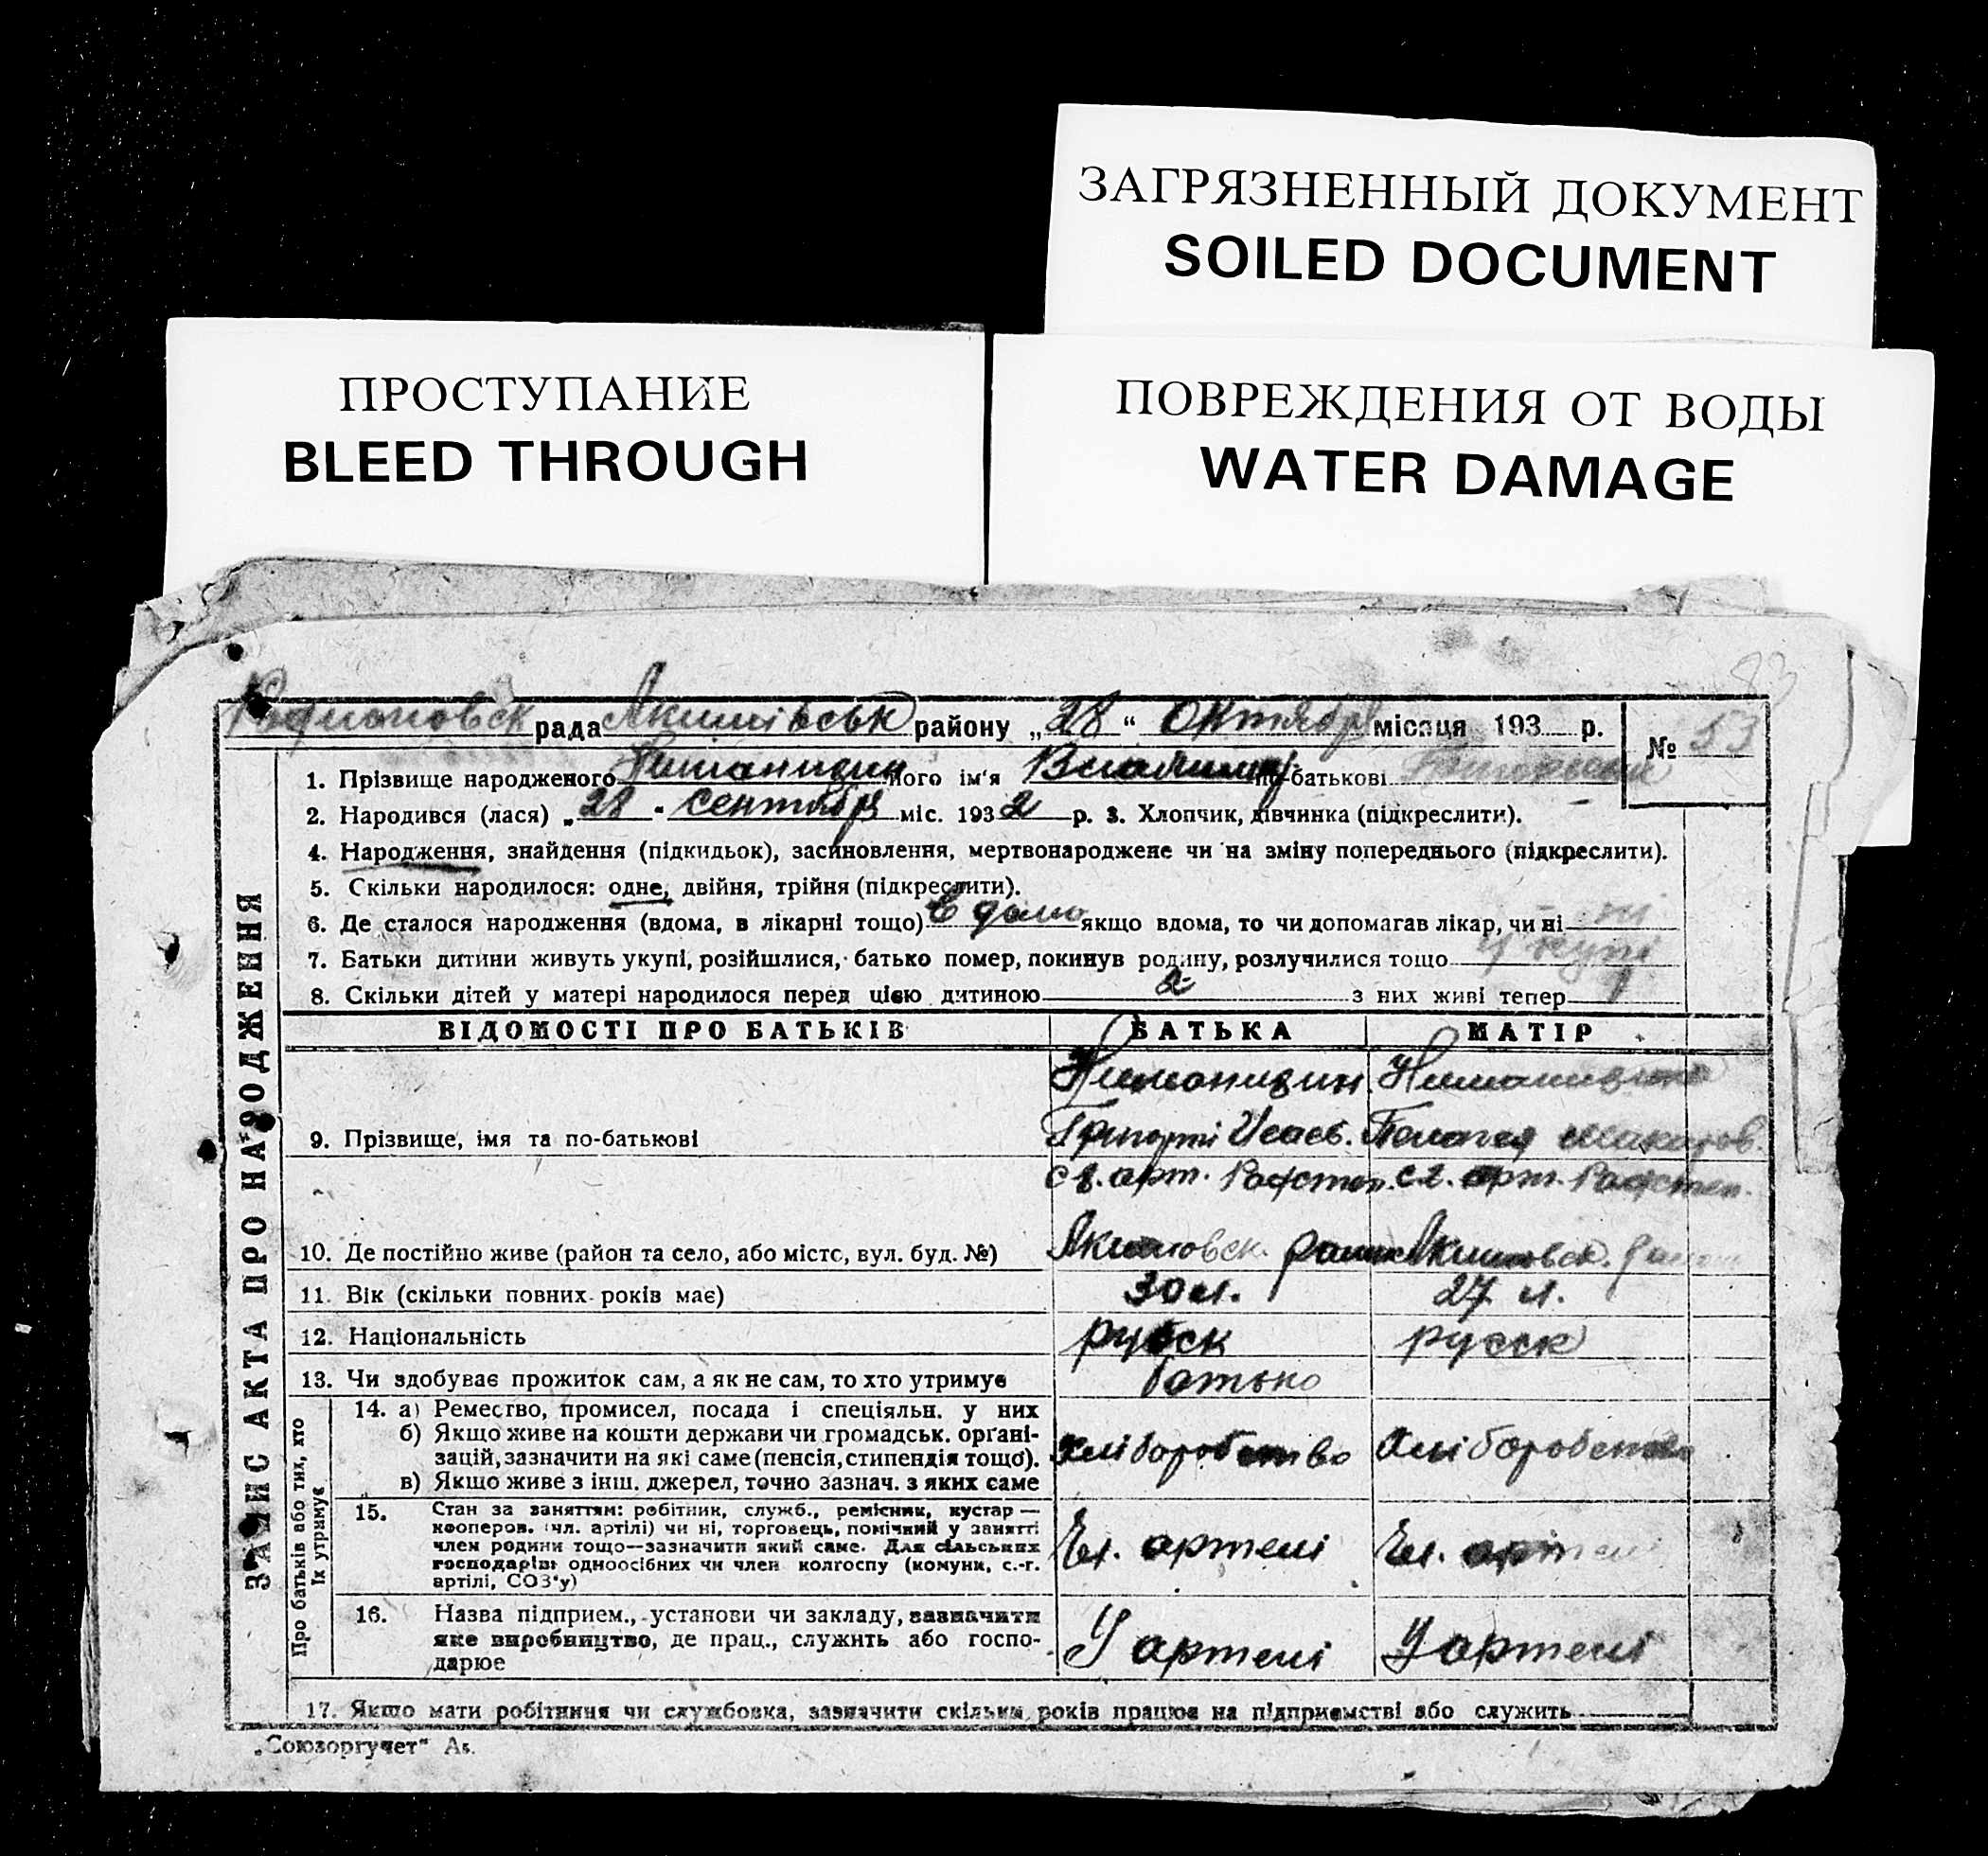 ЗАГРЯЗНЕННЫЙ ДОКУМЕНТ
SOILED DOCUMENT
ПРОСТУПАНИЕ
BLEED THROUGH
ПОВРЕЖДЕНИЯ ОТ ВОДЫ
WATER DAMAGE
рада Якимівськ району „28“ Октября місяця 193 р.
№ 53
1. Прізвище народженого його ім'я Владимир по-батькові
2. Народився (лася) „28 " сентября міс. 1932 р. 3. Хлопчик, дівчинка (підкреслити).
4. Народження, знайдення (підкидьок), засиновлення, мертвонароджене чи на зміну попереднього (підкреслити).
5. Скільки народилося: одне, двійня, трійня (підкреслити).
6. Де сталося народження (вдома, в лікарні тощо) в дома якщо вдома, то чи допомагав лікар, чи ні ні
7. Батьки дитини живуть укупі, розійшлися, батько помер, покинув родину, розлучилися тощо укупі
8. Скільки дітей у матері народилося перед цією дитиною 2 з них живі тепер 1
ЗАПИС АКТА ПРО НАРОДЖЕННЯ
ВІДОМОСТІ ПРО БАТЬКІВ БАТЬКА МАТІР
9. Прізвище, імя та по-батькові Григорій Исаев. Пелагея Макаров.
10. Де постійно живе (район та село, або місто, вул. буд. №) Якимовск. район Якимовск. район
11. Вік (скільки повних років має) 30 л. 27 л.
12. Національність русск русск
13. Чи здобуває прожиток сам, а як не сам, то хто утримує батько
Про батьків або тих, хто їх утримує
14. а) Ремество, промисел, посада і спеціяльн. у них
б) Якщо живе на кошти держави чи громадськ. органі-
зацій, зазначити на які саме (пенсія, стипендія тощо). хліборобство хліборобство
в) Якщо живе з інш. джерел, точно зазнач. з яких саме
15. Стан за заняттям: робітник, служб., ремісник, кустар —
кооперов. (чл. артілі) чи ні, торговець, помічний у занятті
член родини тощо—зазначити який саме. Для сільських
господарів: одноосібних чи член колгоспу (комуни, с.-г. Чл. артелі Чл. артелі
артілі, СОЗ'у)
16. Назва підприєм., установи чи закладу, зазначити
яке виробництво, де прац., служить або госпо- У артелі У артелі
дарює
17. Якщо мати робітниця чи службовка, зазначити скільки років працює на підприємстві або служить
„Союзоргучет"